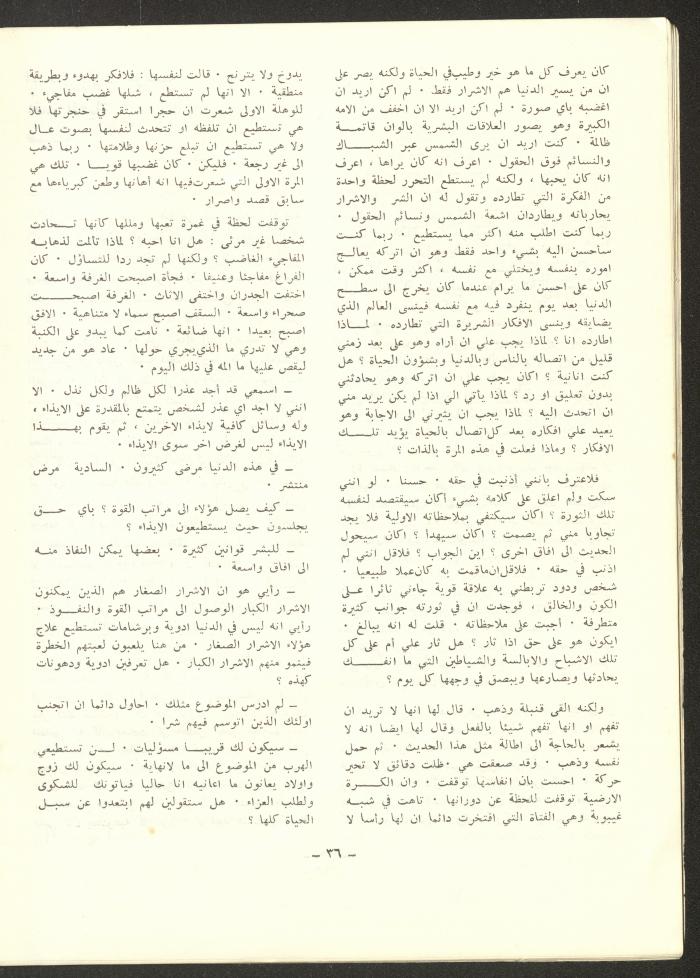 كان يعرف كل ما هو خير وطيب في الحياة ولكنه يصر على
ان من يسير الدنيا هم الاشرار فقط . لم اكن اريد ان
اغضبه باي صورة . لم اكن اريد الا ان اخفف من الامه
الكبيرة وهو يصور العلاقات البشرية بالوان قاتمــة
ظالمة . كنت اريد ان يرى الشمس عبر الشبــاك
والنسائم فوق الحقول . اعرف انه كان يراها ، اعرف
انه كان يحبها ، ولكنه لم يستطع التحرر لحظة واحدة
من الفكرة التي تطارده وتقول له ان الشر والاشرار
يحاربانه ويطاردان اشعة الشمس ونسائم الحقول .
ربما كنت اطلب منه اكثر مما يستطيع . ربما كنــت
ساحسن اليه بشيء واحد فقط وهو ان اتركه يعالــج
اموره بنفسه ويختلي مع نفسه ، اكثر وقت ممكن ،
كان على احسن ما يرام عندما كان يخرج الى سطــح
الدنيا بعد يوم ينفرد فيه مع نفسه فينسى العالم الذي
يضايقه وينسى الافكار الشريرة التي تطارده . لمــاذا
اطارده انا ؟ لماذا يجب علي ان أراه وهو على بعد زمني
قليل من اتصاله بالناس وبالدنيا وبشؤون الحياة ؟ هل
كنت انانية ؟ اكان يجب علي ان اتركه وهو يحادثني
بدون تعليق او رد ؟ لماذا يأتي الي اذا لم يكن يريد مني
ان اتحدث اليه ؟ لماذا يجب ان يثيرني الى الاجابة وهو
يعيد علي افكاره بعد كل اتصال بالحياة يؤيد تلــك
الافكار ؟ وماذا فعلت في هذه المرة بالذات ؟
فلاعترف بانني أذنبت في حقه . حسنا . لو انني
سكت ولم اعلق على كلامه بشيء أكان سيقتصد لنفسه
تلك الثورة ؟ اكان سيكتفي بملاحظاته الاولية فلا يجد
تجاوبا مني ثم يصمت ؟ اكان سيهدأ ؟ اكان سيحول
الحديث الى افاق اخرى ؟ اين الجواب ؟ فلاقل انني لم
اذنب في حقه . فلاقل ان ماقمت به كان عملا طبيعيا .
شخص ودود تربطني به علاقة قوية جاءني ثائرا على
الكون والخالق ، فوجدت ان في ثورته جوانب كثيرة
متطرفة . أجبت على ملاحظاته . قلت له انه يبالغ .
ايكون هو على حق اذا ثار ؟ هل ثار علي أم على كل
تلك الاشباح والابالسة والشياطين التي ما انفــــك
يحادثها ويصارعها ويبصق في وجهها كل يوم ؟
ولكنه القى قنبلة وذهب . قال لها انها لا تريد ان
تفهم او انها تفهم شيئا بالفعل وقال لها ايضا انه لا
يشعر بالحاجة الى اطالة مثل هذا الحديث . ثم حمل
نفسه وذهب . وقد صعقت هي . ظلت دقائق لا تحير
حركة . احست بان انفاسها توقفت . وان الكــــرة
الارضية توقفت للحظة عن دورانها . تاهت في شبــه
غيبوبة وهي الفتاة التي افتخرت دائما ان لها رأسا لا
يدوخ ولا يترنح . قالت لنفسها : فلافكر بهدوء وبطريقة
منطقية . الا انها لم تستطع ، شلها غضب مفاجيء .
للوهلة الاولى شعرت ان حجرا استقر في حنجرتها فلا
هي تستطيع ان تلفظه او تتحدث لنفسها بصوت عــال
ولا هي تستطيع ان تبلع حزنها وظلامتها . ربما ذهب
الى غير رجعة . فليكن . كان غضبها قويــا . تلك هي
المرة الاولى التي شعرت فيها انه أهانها وطعن كبرياءها مع
سابق قصد واصرار .
توقفت لحظة في غمرة تعبها ومللها كانها تــحادث
شخصا غير مرئى : هل انا احبه ؟ لماذا تألمت لذهابــه
المفاجيء الغاضب ؟ ولكنها لم تجد ردا للتساؤل . كان
الفراغ مفاجئا وعنيفا . فجأة اصبحت الغرفة واسعة .
اختفت الجدران واختفى الاثاث . الغرفة اصبحــــت
صحراء واسعة . السقف اصبح سماء لا متناهية . الافق
اصبح بعيدا . انها ضائعة . نامت كما يبدو على الكنبة
وهي لا تدري ما الذي يجري حولها . عاد هو من جديد
ليقص عليها ما المه في ذلك اليوم .
ــ اسمعي قد أجد عذرا لكل ظالم ولكل نذل . الا
انني لا اجد اي عذر لشخص يتمتع بالمقدرة على الايذاء ،
وله وسائل كافية لايذاء الاخرين ، ثم يقوم بهــــذا
الايذاء ليس لغرض اخر سوى الايذاء .
ــ في هذه الدنيا مرضى كثيرون . السادية مرض
منتشر .
ــ كيف يصل هؤلاء الى مراتب القوة ؟ باي حــق
يجلسون حيث يستطيعون الايذاء ؟
ــ للبشر قوانين كثيرة . بعضها يمكن النفاذ منــه
الى افاق واسعة .
ــ رأيي هو ان الاشرار الصغار هم الذين يمكنون
الاشرار الكبار الوصول الى مراتب القوة والنفــوذ .
رأيي انه ليس في الدنيا ادوية وبرشامات تستطيع علاج
هؤلاء الاشرار الصغار . من هنا يلعبون لعبتهم الخطرة
فينمو منهم الاشرار الكبار . هل تعرفين ادوية ودهونات
كهذه ؟
ــ لم ادرس الموضوع مثلك . احاول دائما ان اتجنب
اولئك الذين اتوسم فيهم شرا .
ــ سيكون لك قريبــا مسؤليات . لــن تستطيعي
الهرب من الموضوع الى ما لانهاية . سيكون لك زوج
واولاد يعانون ما اعانيه انا حاليا فياتونك للشكوى
ولطلب العزاء . هل ستقولين لهم ابتعدوا عن سبــل
الحياة كلها ؟
ــ ٣٦ ــ